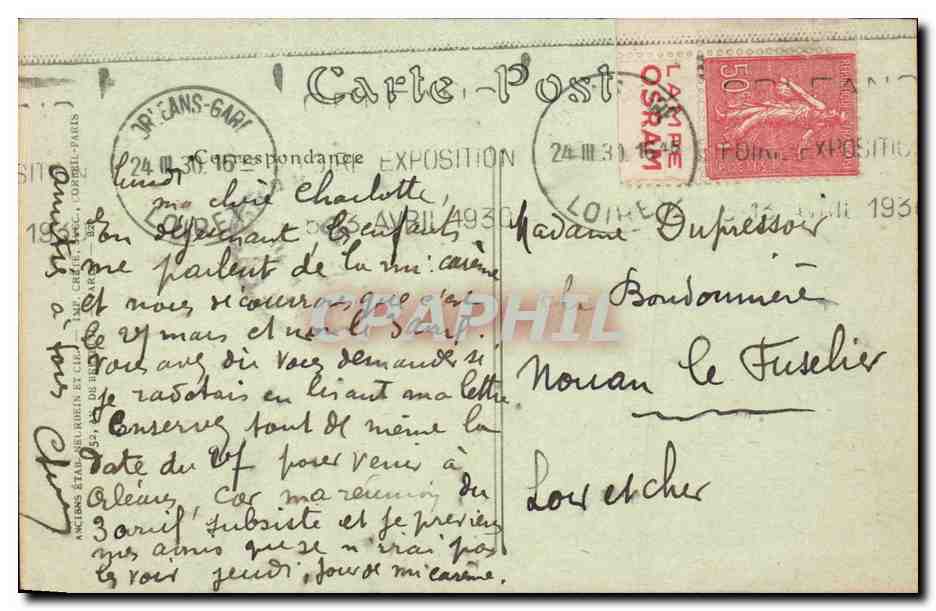 Carte-Post
Correspondance
LAMPE
OSRAM
50
ORLEANS-GARE
24 III 30. 16
LOIRET
EXPOSITION
AVRIL 1930
24 III 30. 16 45
LOIRET
FOIRE EXPOSITION
193
Lundi
ma chère Charlotte,
En déjeunant, les enfants
me parlent de la mi-carême
et nous découvrons que c'est
le 27 mars et non le 3 avril.
Vous avez dû vous demander si
je radotais en lisant ma lettre
Conservez tout de même la
date du 27 pour venir à
Orléans car ma réunion du
3 avril subsiste et je préviens
mes amis que je n'irai pas
les voir jeudi, jour de mi carême.
amitiés à tous
Madame Dupressoir
la Bondonnière
Nouan le Fuselier
Loir et cher
ANCIENS ÉTAB. NEURDEIN ET CIE. — IMP. CRÉTÉ, SUCC., CORBEIL-PARIS
CPAPHIL